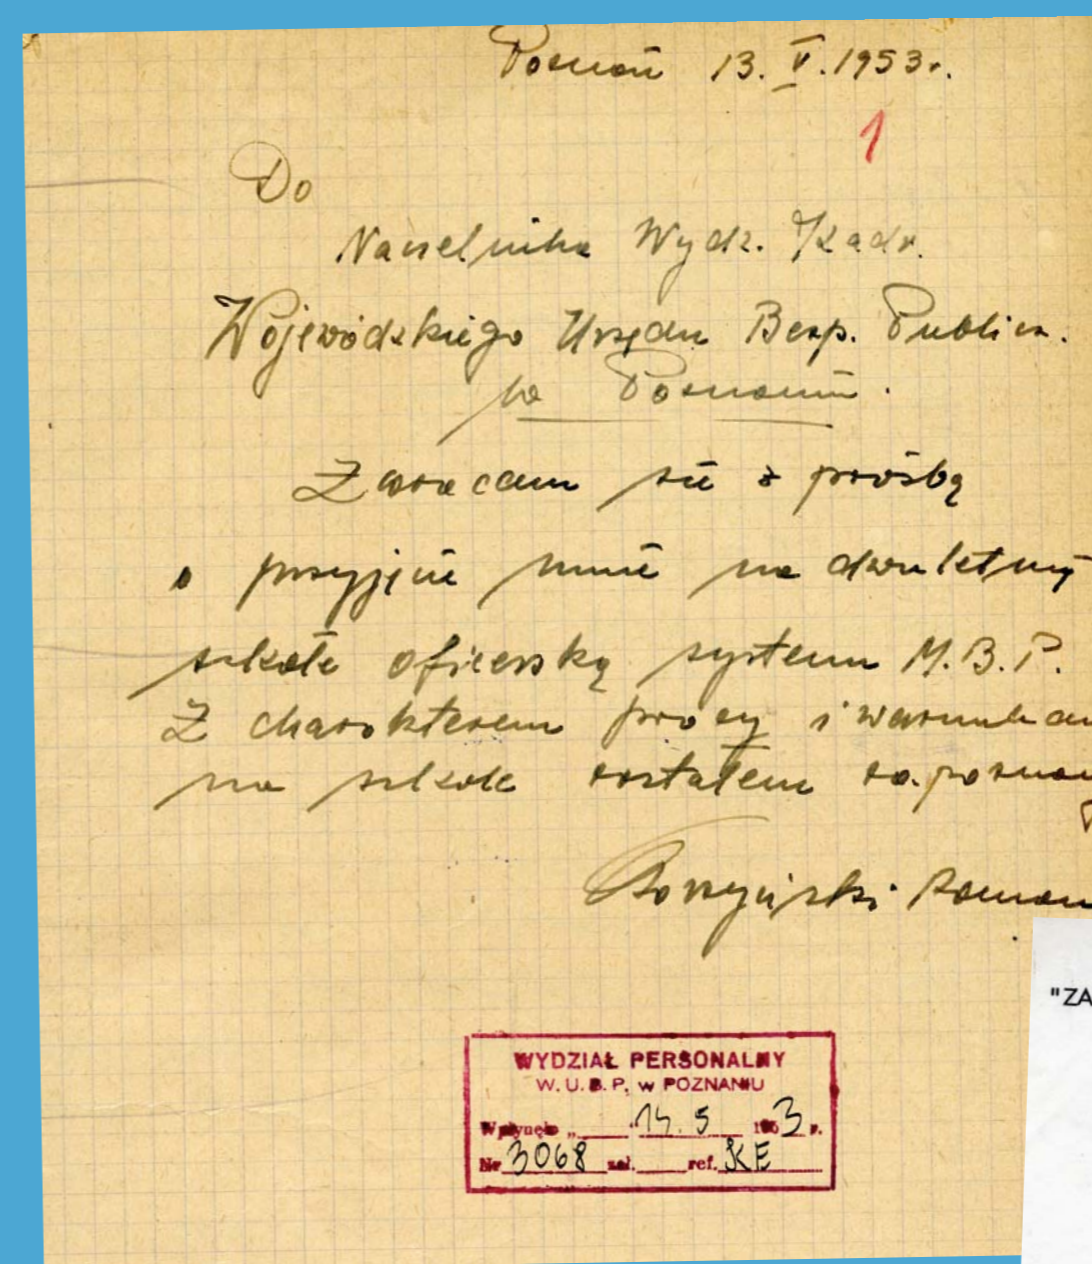 Poznań 13. V. 1953 r.
1
Do
Naczelnika Wydz. Kadr.
Wojewódzkiego Urzędu Bezp. Publicz.
w Poznaniu.
Zwracam się z prośbą
o przyjęcie mnie na dwuletnią
szkołę oficerską systemu M.B.P.
Z charakterem pracy i warunkam
na szkole zostałem zapoznan
Roman
WYDZIAŁ PERSONALNY
W. U. B. P. w POZNANIU
Wpłynęło „ " 14. 5 1953 r.
Nr 3068 zał. ref. KE
"ZA